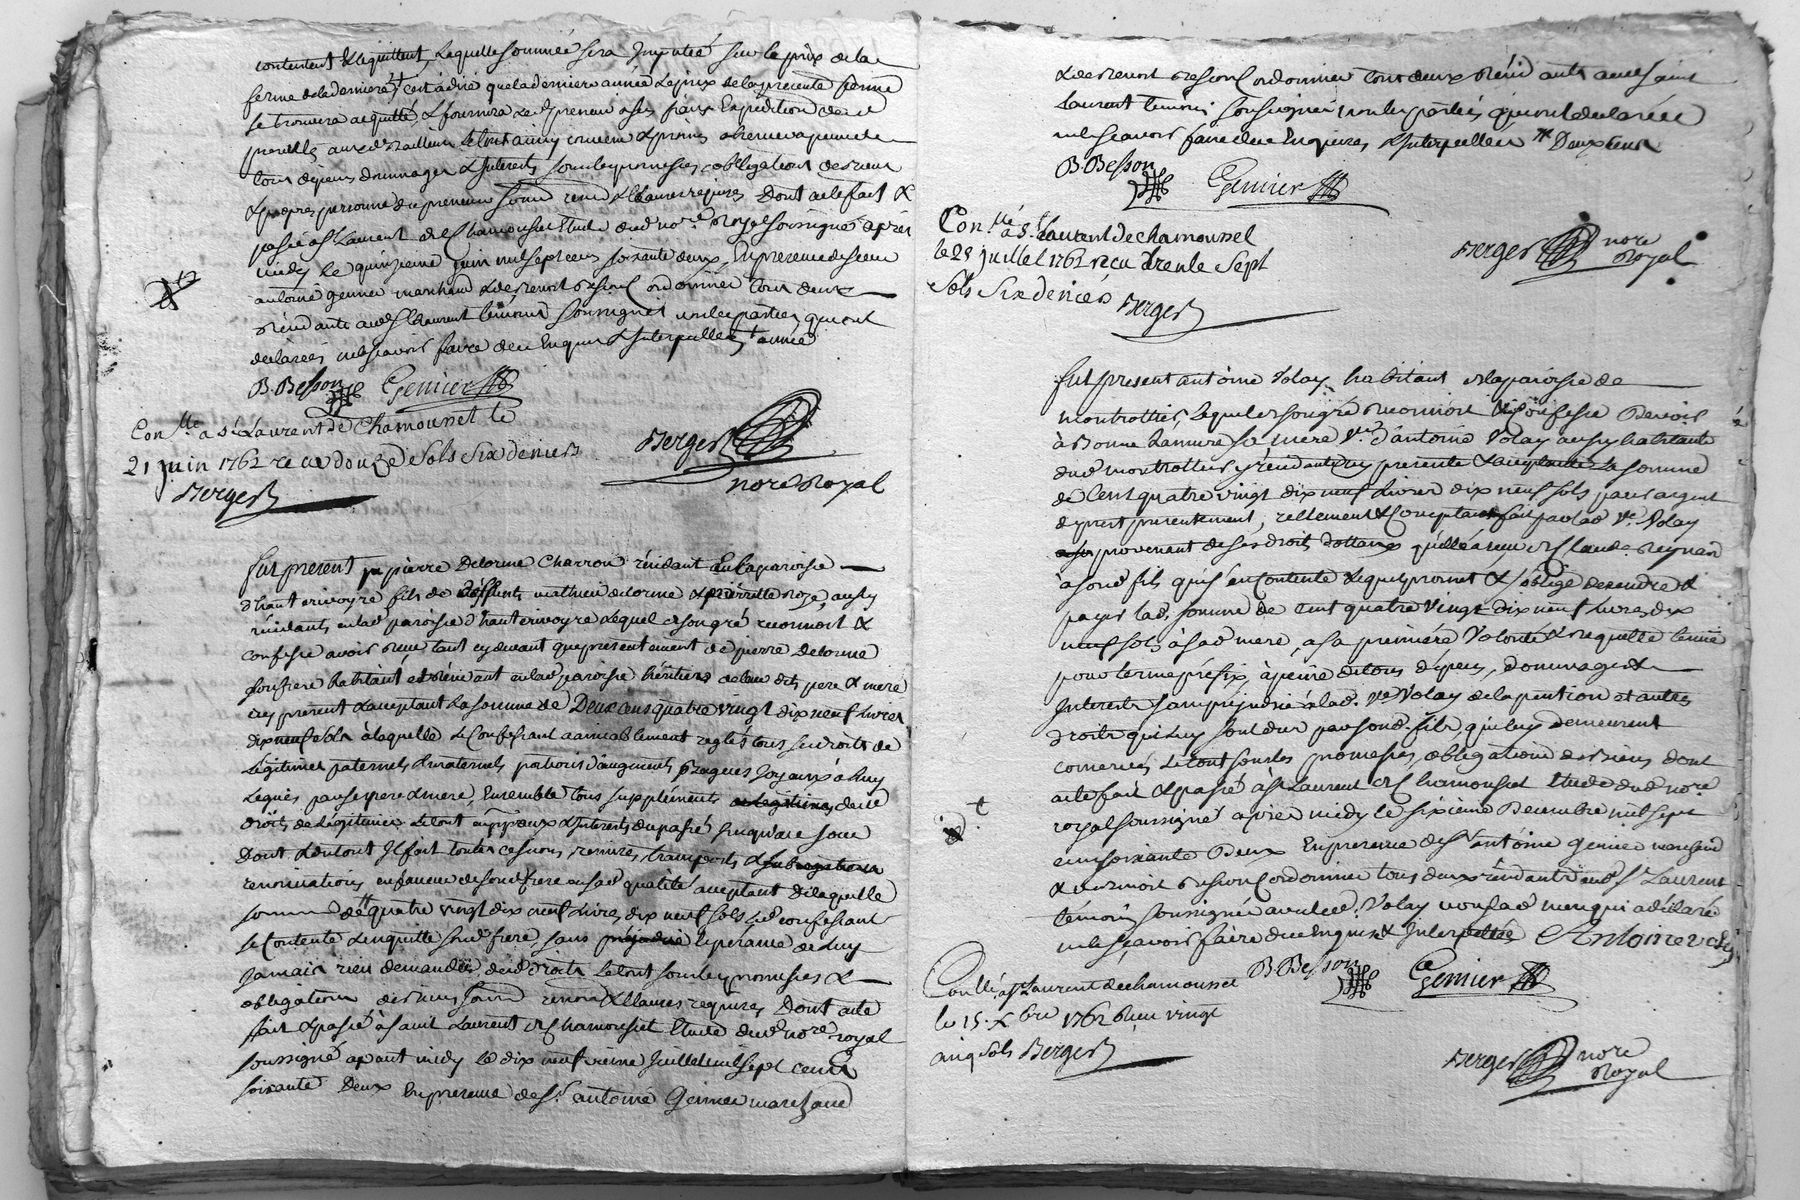 contentent & quittent, laquelle somme sera imputée sur le prix de la
ferme de la derniere c'est à dire que la derniere année le prix de la presente ferme
se trouvera acquitté, & fournira led. preneur à ses frais Expedition
le tout ainsy convenu
tous depens dommages & Interets sous les promesses obligations
personne du preneur clauses requises Dont acte fait &
passé à St Laurent de Chamousset Etude dud. nore. Royal soussigné après
midy le quinzieme juin mil sept cens soixante deux, En presence de sieur
antoine genier marchand & de benoit besson Cordonnier tous deux
residants aud. St Laurent temoins soussignés non les parties qui ont
declarées ne sçavoir faire de ce Enquis & Interpellés année
B. Besson Genier
Con.lle a St Laurent de Chamousset le
21 juin 1762 recu douze sols six deniers
Berger
Berger
nore Royal
fut present pierre Delorme Charron résidant En la paroisse
d'hauterivoyre fils de deffunts mathieu delorme & pierrette Roze, aussy
résidants en lad. paroisse d'hauterivoyre Lequel de son gré reconnoit &
confesse avoir reçu tant cy devant que presentement de pierre Delorme
son frere habitant et résidant en lad. paroisse héritier de leurs dits pere & mere
cy present & acceptant la somme de Deux cens quatre vingt dix neuf livres
dix neuf sols à laquelle le Confessant a amiablement reglés tous ses droits de
Légitimes paternels & maternels, portions d'augments Bagues Joyaux à luy
Legués par ses pere & mere, Ensemble tous supplements de Legitimes
droits de Légitimes Le tout & Interets du passé jusqu'à ce jour
Dont & du tout Il fait toutes cessions, remises, transports & subrogations
renonciations en faveur de son d. frere en sad. qualité acceptant De laquelle
somme de quatre vingt dix neuf livres dix neuf sols led. confessant
se Contente & en quitte sond. frere, sans préjudice Esperance de luy
Jamais rien demander desd. droits Le tout sous les promesses &
obligations de biens clauses requises, Dont acte
fait & passé à saint Laurent de Chamousset Etude dud. nore. royal
soussigné avant midy le dix neufvieme Juillet mil sept cens
soixante Deux En presence de Sr. antoine Genier marchand
& de benoit besson Cordonnier tous deux résidants aud. saint
Laurent temoins soussignés non les parties qui ont declarées
ne sçavoir faire de ce Enquises & Interpellées Deux cens
B. Besson Genier
Con.lle a St Laurent de chamoussel
le 28 juillet 1762 recu trente sept
sols six deniers
Berger
Berger nore
Royal
fut present antoine Volay habitant de la paroisse de
montrottier, Lequel de son gré reconnoit & Confesse Devoir
à Bonne Lamure sa mere Ve. d'antoine Volay aussy habitante
dud. montrottier y résidante cy presente & acceptante la somme
de Cent quatre vingt dix neuf Livres dix neuf sols pour argent
de prest presentement, réellement & Comptant fait par lad. Ve. Volay
provenant de ses droits dottaux qu'elle a reçu de Claude
à sond. fils qui s'en Contente & Lequel promet & s'oblige de rendre &
payer lad. somme de Cent quatre Vingt dix neuf Livres dix
neuf sols à sad. mere, à sa premiére Volonté & requette tenue
pour terme préfix, à peine de tous dépens, dommages &
Interets sans préjudice à lad. Ve. Volay de la pention et autres
droits qui luy sont dus par sond. fils, qui luy demeurent
conservés Le tout sous les promesses obligations de biens dont
acte fait & passé à St Laurent de Chamousset Etude dud. nore.
royal soussigné après midy le sixieme Decembre mil sept
cens soixante Deux En presence de Sr antoine genier marchand
& de benoit besson Cordonnier tous deux résidants aud. St Laurent
témoins soussignés avec led. Volay non sad. mere qui a déclaré
ne sçavoir faire de ce Enquise & Interpellée Antoine volay
B. Besson Genier
Con.lle a St Laurent de chamousset
le 15. Xbre 1762 Reçu vingt
cinq sols Berger
Berger nore
Royal